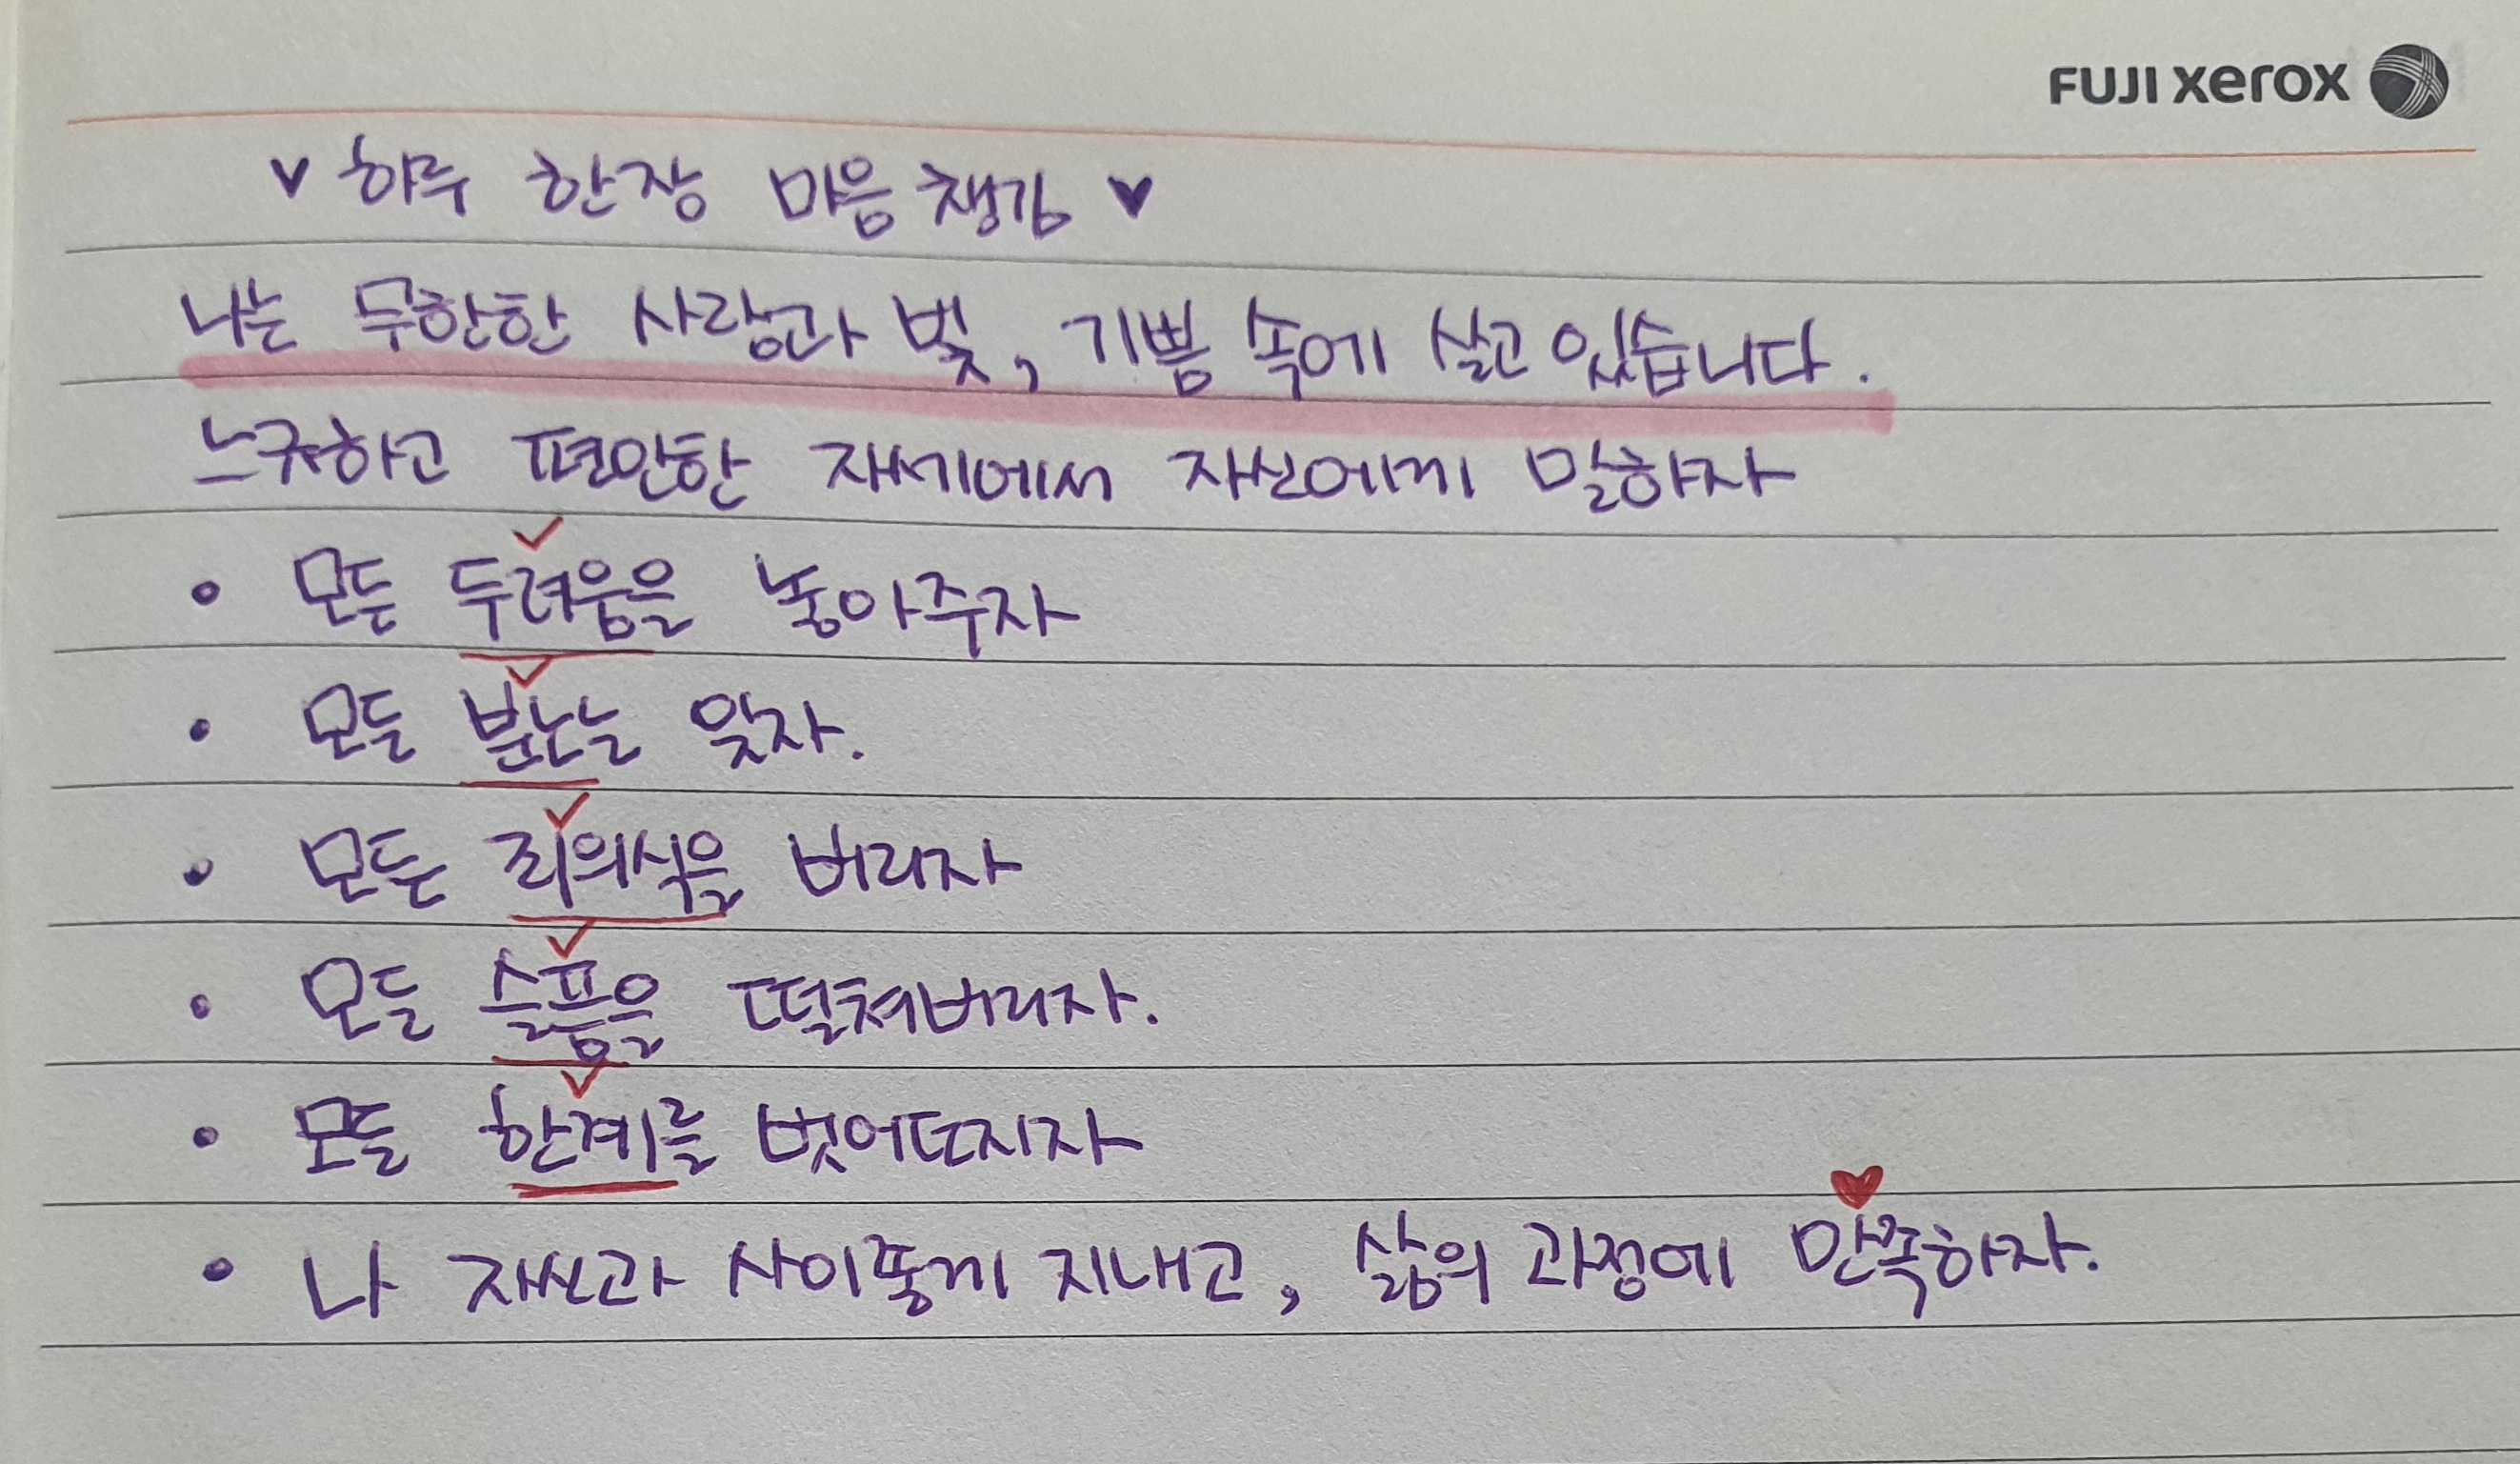 FUJI xerox
♥ 하루 한장 마음챙김 ♥
나는 무한한 사랑과 빛, 기쁨 속에 살고 있습니다.
느긋하고 편안한 자세에서 자신에게 말하자
• 모든 두려움을 놓아주자
• 모든 분노는 잊자.
• 모든 죄의식을 버리자
• 모든 슬픔을 떨쳐버리자.
• 모든 한계를 벗어던지자
• 나 자신과 사이좋게 지내고, 삶의 과정에 만족하자.